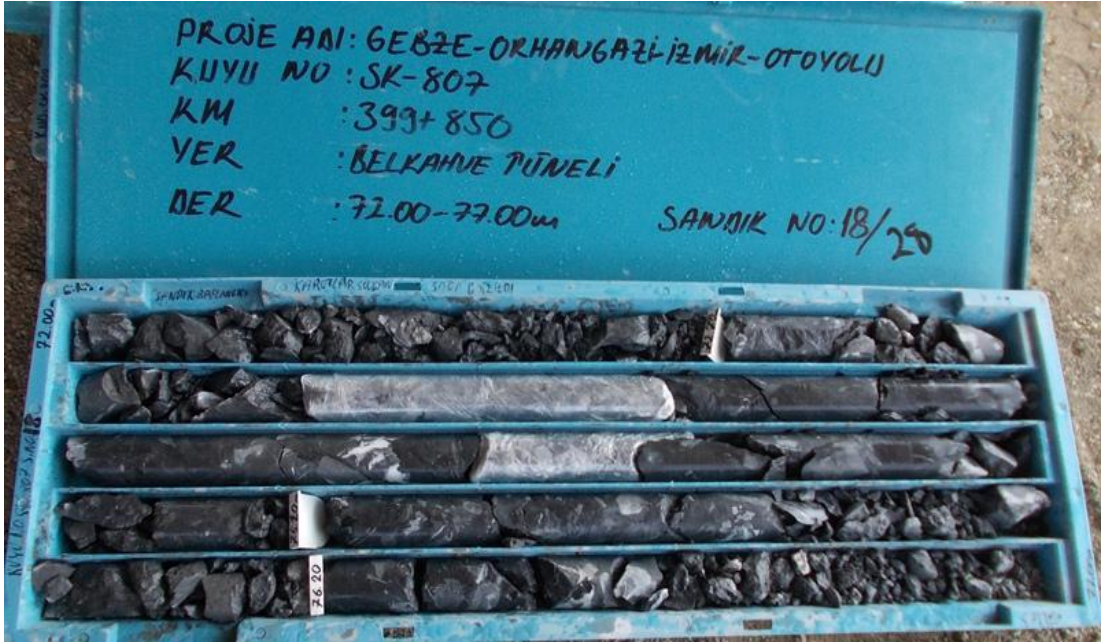 PROJE ADI: GEBZE-ORHANGAZİ-İZMİR-OTOYOLU
KUYU NO : SK-807
KM : 399+850
YER : BELKAHVE TÜNELİ
DER : 72.00-77.00m SANDIK NO: 18/28
72.00
76.20